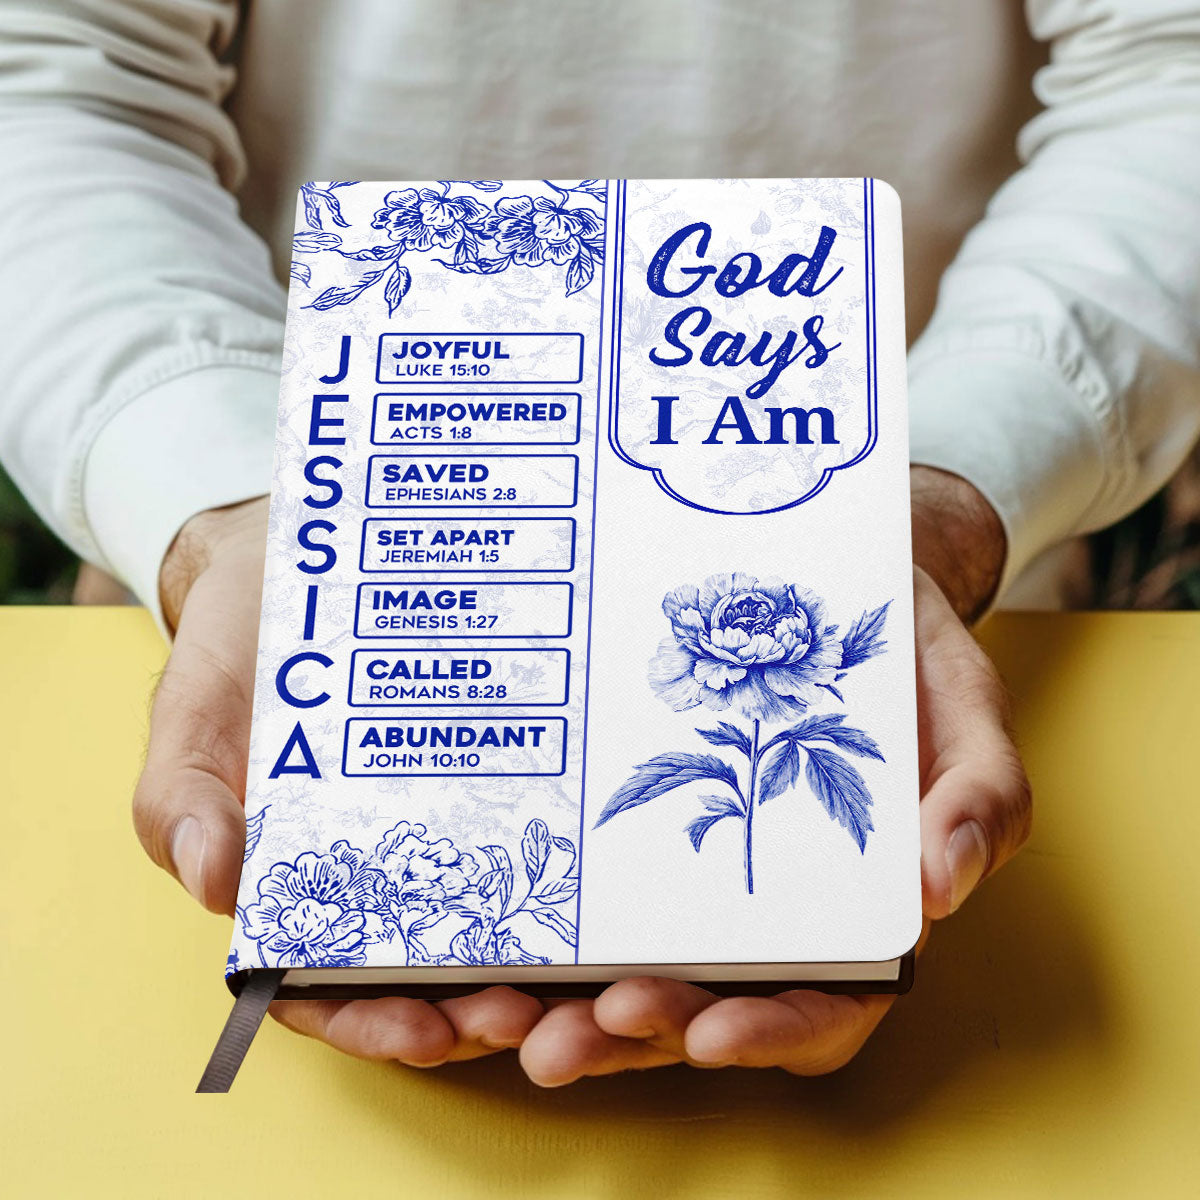 God
Says
I Am
J
JOYFUL
LUKE 15:10
E
EMPOWERED
ACTS 1:8
S
SAVED
EPHESIANS 2:8
S
SET APART
JEREMIAH 1:5
I
IMAGE
GENESIS 1:27
C
CALLED
ROMANS 8:28
A
ABUNDANT
JOHN 10:10